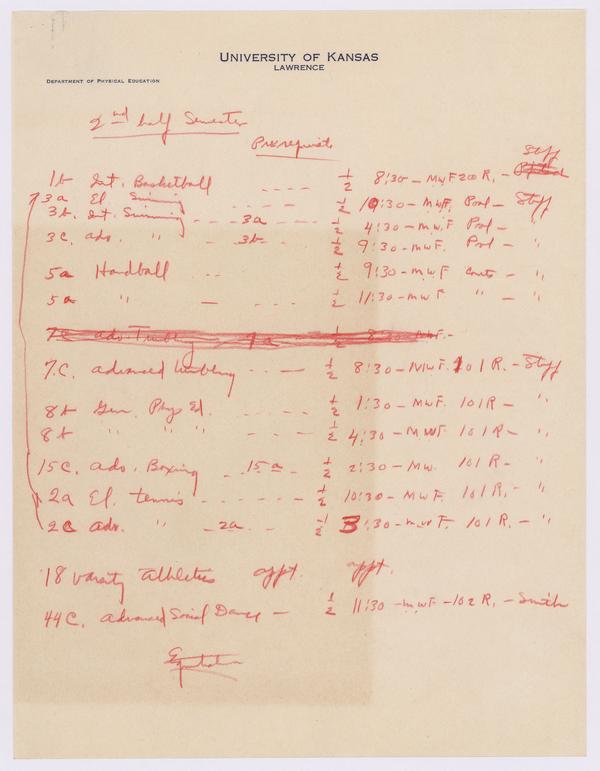 UNIVERSITY OF KANSAS
LAWRENCE
DEPARTMENT OF PHYSICAL EDUCATION
2nd half Semester
Prerequisite
Staff
1b Int. Basketball - - - - ½ 8:30 - MWF 200 R. -
3a El. Swimming ½ 10:30 - MWF. Pool - Staff
3b. Int. Swimming - - - 3a - - - ½ 4:30 - M.W.F Pool - "
3c. adv. " - - 3b - ½ 9:30 - MWF. Pool - "
5a Handball - - ½ 9:30 - MWF Courts - "
5a " - ½ 11:30 - MWF " - "
7C adv. Tumbling 7a - ½ 8:30 MWF. -
7.C. advanced tumbling - - - - ½ 8:30 - MWF. 101 R. - Staff
8b Gen. Phys Ed. - - - ½ 1:30 - MWF. 101R - "
8b " " " - - - ½ 4:30 - MWF. 101R - "
15C. adv. Boxing - 15a - - ½ 2:30 - MW. 101R - "
2a El. tennis - - - - - ½ 10:30 - MWF. 101R. - "
2c adv. " - 2a - ½ 3:30 - MWF. 101R. - "
18 varsity athletics appt. appt.
44C. advanced Social Dance - ½ 11:30 - MWF - 102 R. - Smith
Equitation